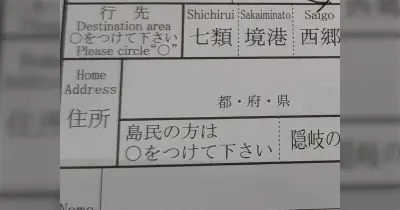 行 先
Destination area
○をつけて下さい
Please circle“○”
Shichirui Sakaiminato Saigo
七類 境港 西郷
Home
Address
住所
都・府・県
島民の方は
○をつけて下さい
隠岐の
Name